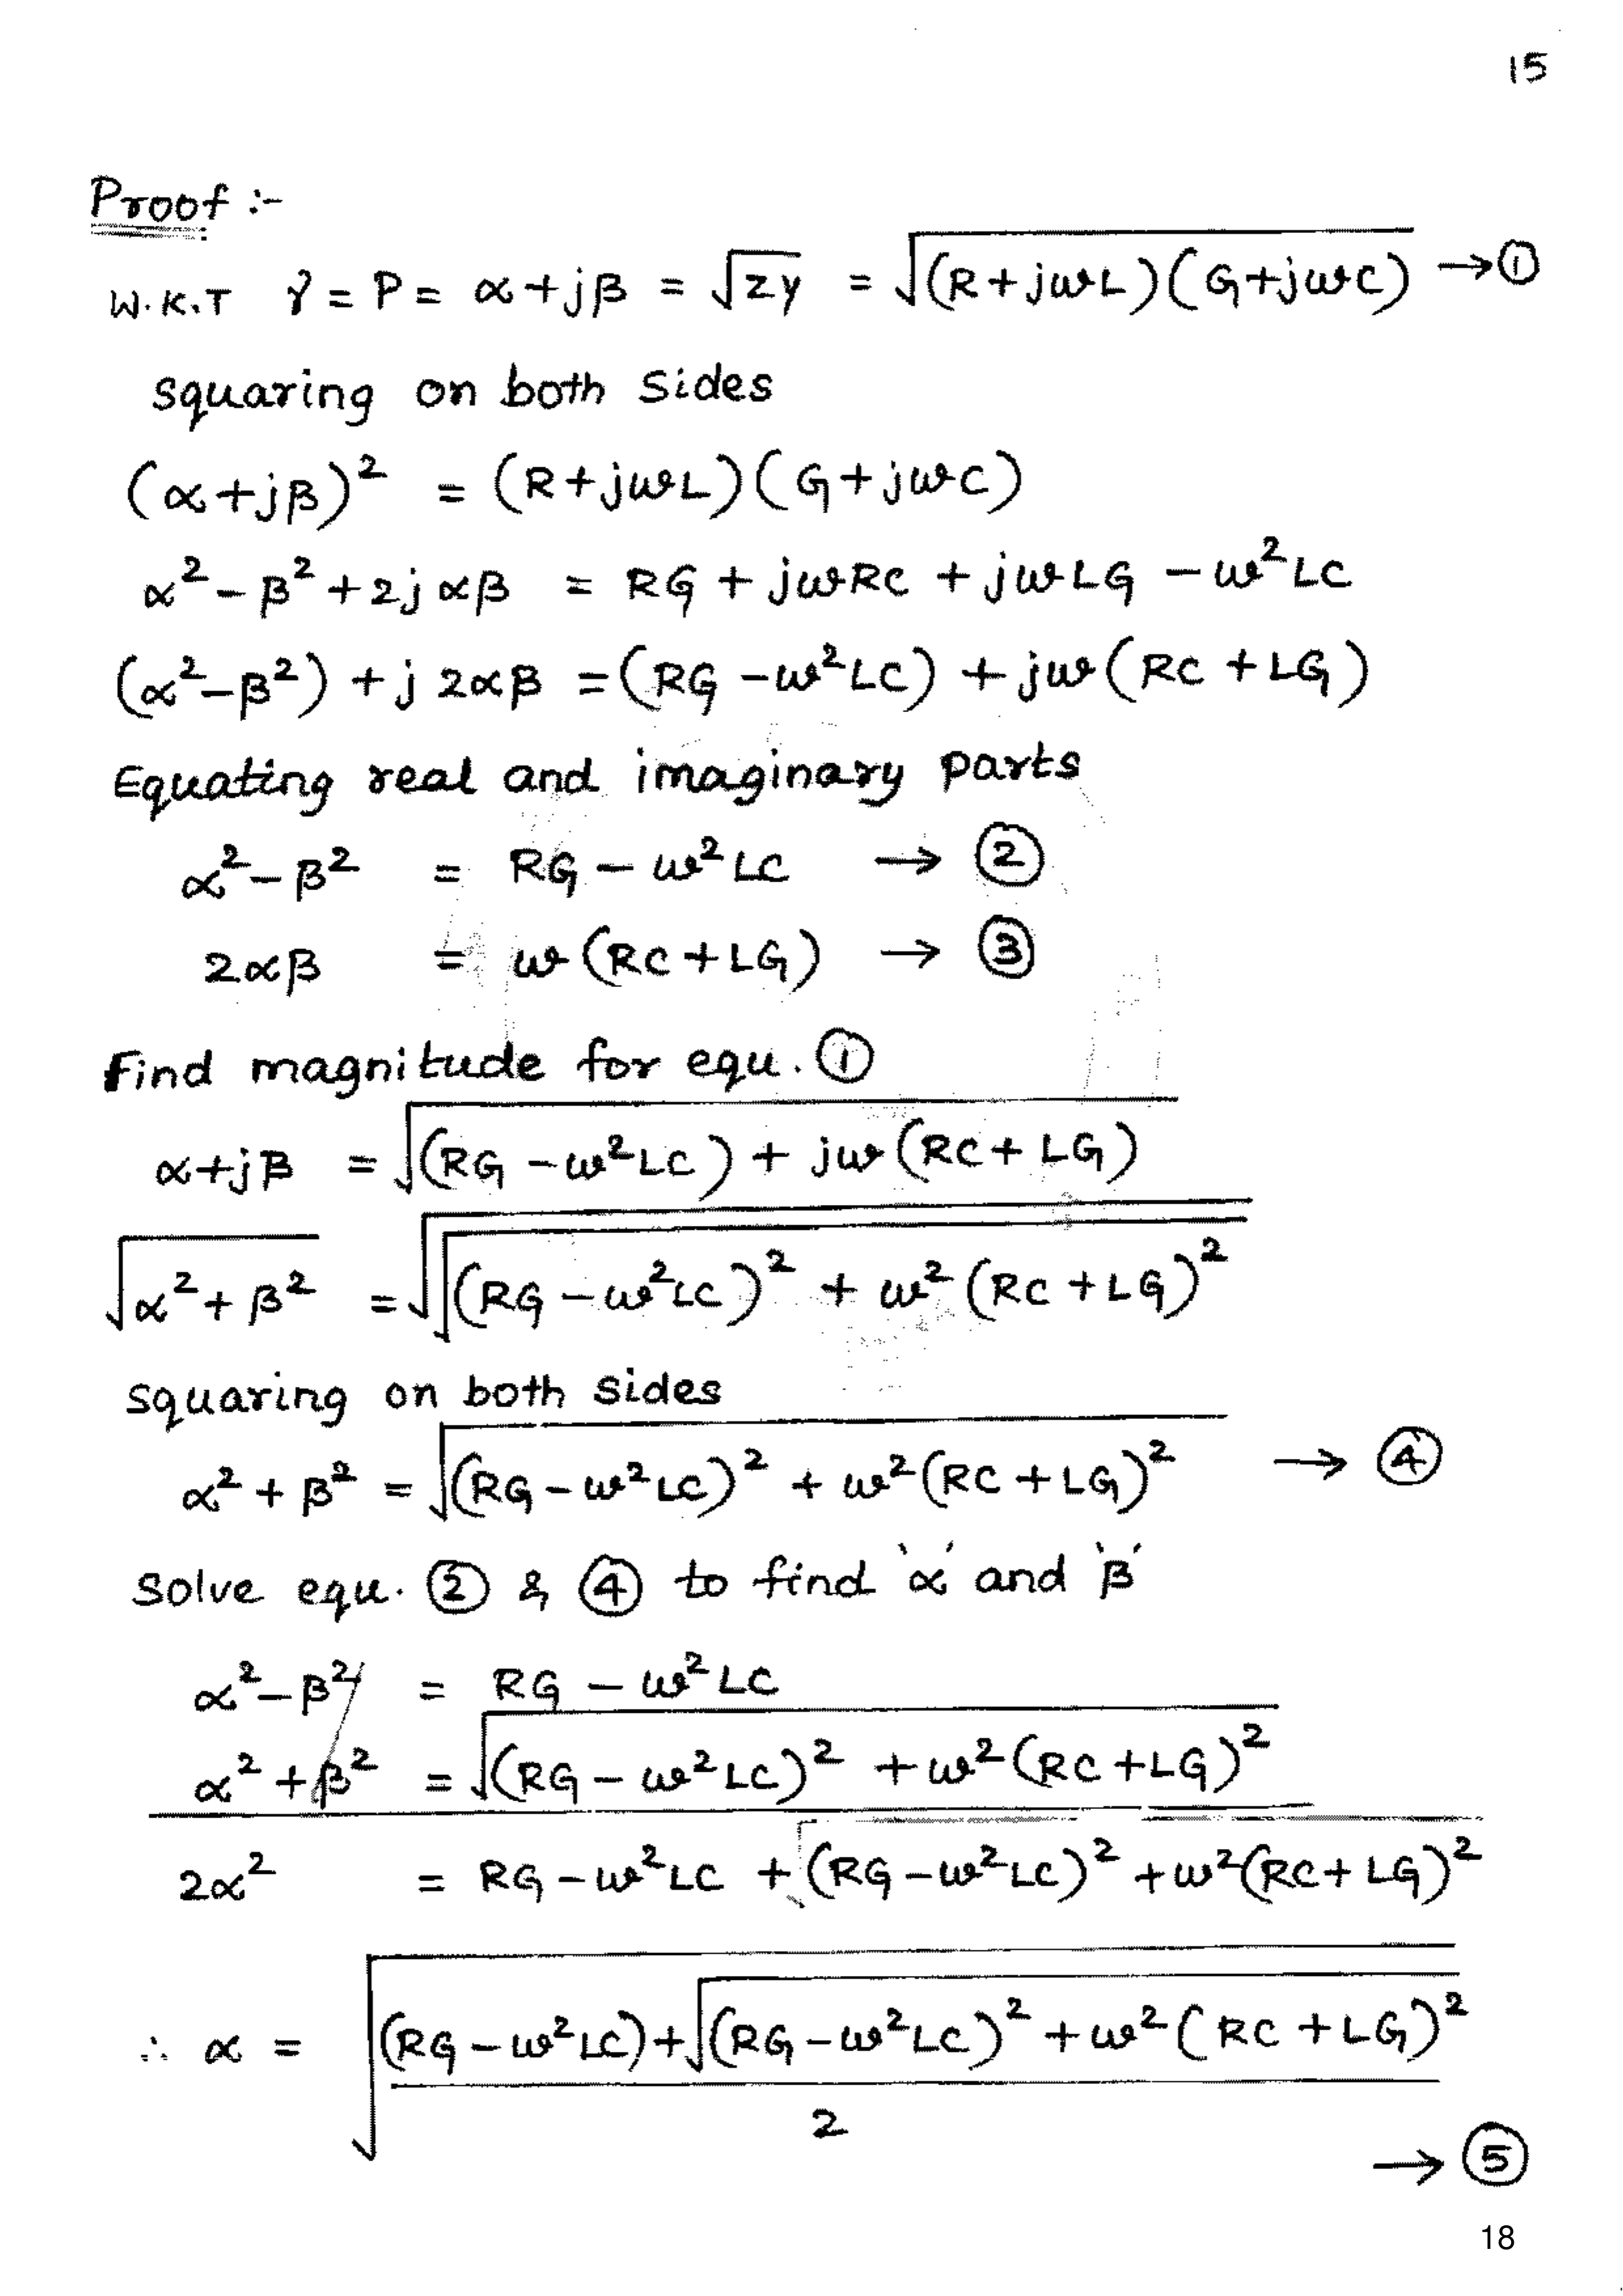 15
Proof :-
W.K.T γ = P = α+jβ = √zy = √(R+jωL)(G+jωC) → ①
squaring on both sides
(α+jβ)² = (R+jωL)(G+jωC)
α²-β²+2jαβ = RG + jωRC + jωLG - ω²LC
(α²-β²) + j 2αβ = (RG - ω²LC) + jω(RC + LG)
Equating real and imaginary parts
α²-β² = RG - ω²LC → ②
2αβ = ω(RC+LG) → ③
Find magnitude for equ. ①
α+jβ = √(RG - ω²LC) + jω(RC + LG)
√α²+β² = √√(RG - ω²LC)² + ω²(RC + LG)²
squaring on both sides
α² + β² = √(RG - ω²LC)² + ω²(RC + LG)² → ④
Solve equ. ② & ④ to find 'α' and 'β'
α²-β² = RG - ω²LC
α²+β² = √(RG - ω²LC)² + ω²(RC+LG)²
2α² = RG - ω²LC + √(RG - ω²LC)² + ω²(RC+LG)²
∴ α = √(RG - ω²LC)+√(RG - ω²LC)² + ω²(RC + LG)²
2
→ ⑤
18